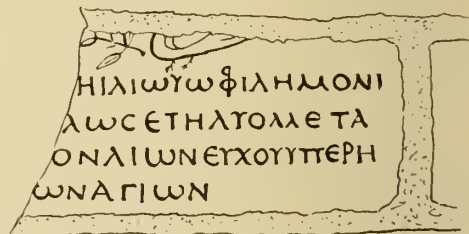 ΗΙΛΙΩΥΩΦΙΛΗΜΟΝΙ
ΛΩϹΕΤΗΛΥΟΜΕΤΑ
ΟΝΛΙΩΝΕΥΧΟΥΥΠΕΡΗ
ΩΝΑΓΙΩΝ